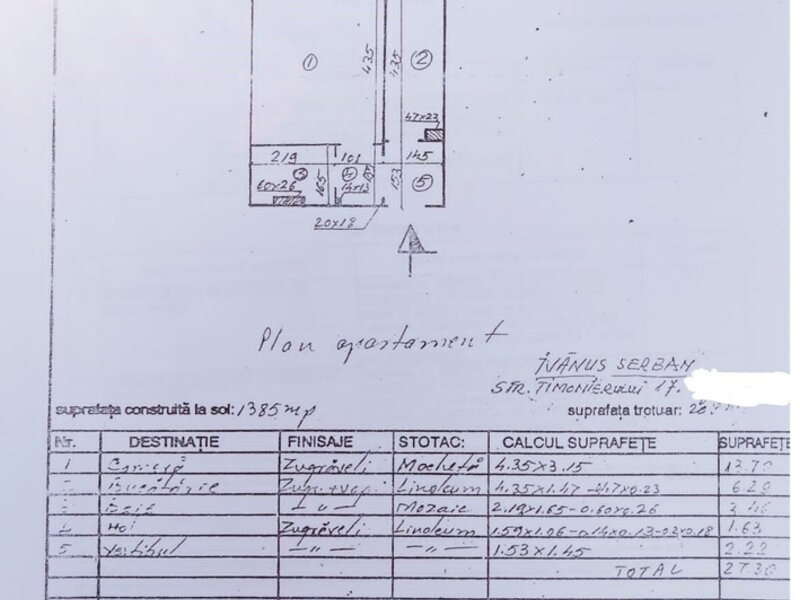 1
435
435
2
47x23
219
101
145
3
4
60x26
165
14x13
153
5
20x18
Plan apartament
IVĂNUS SERBAN
STR. TIMONIERULUI 17.
suprafața construită la sol: 1385 mp
suprafata trotuar:
Nr. DESTINAȚIE FINISAJE STOTAC: CALCUL SUPRAFEȚE SUPRAFEȚE
1 Cameră Zugrăveli Mochetă 4.35x3.15 13.70
2 Bucătărie Linoleum 4.35x1.47-47x0.23 6.29
3 Baie Mozaic 2.19x1.65-0.60x0.26 3.46
4 Hol Zugrăveli Linoleum 1.59x1.06-0.14x0.13-0.2x0.18 1.63
5 Vestibul -"- -"- 1.53x1.45 2.22
TOTAL 27.30